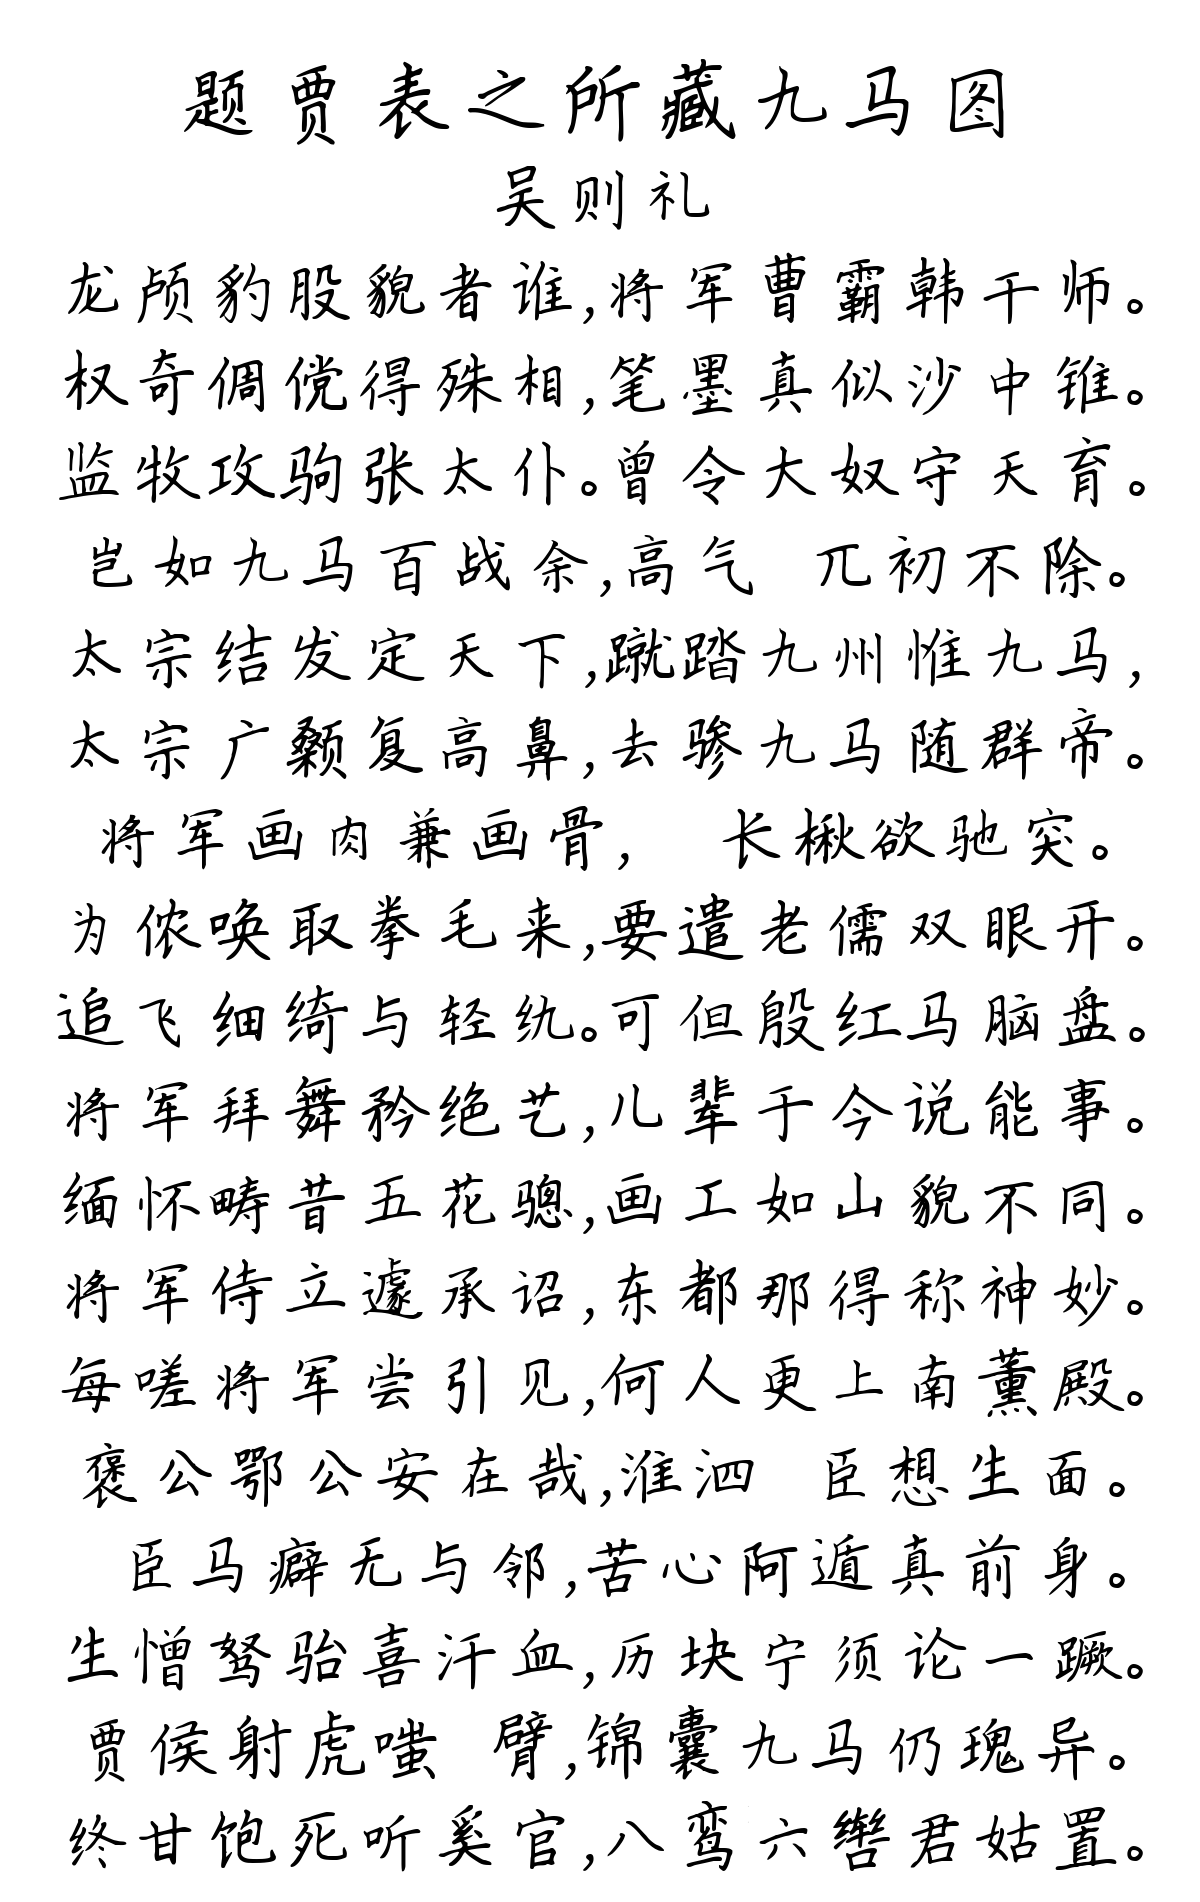 题贾表之所藏九马图
吴则礼
龙颅豹股貌者谁,将军曹霸韩干师。
权奇倜傥得殊相,笔墨真似沙中锥。
监牧攻驹张太仆。曾令大奴守天育。
岂如九马百战余,高气 兀初不除。
太宗结发定天下,蹴踏九州惟九马,
太宗广颡复高鼻,去骖九马随群帝。
将军画肉兼画骨, 长楸欲驰突。
为侬唤取拳毛来,要遣老儒双眼开。
追飞细绮与轻纨。可但殷红马脑盘。
将军拜舞矜绝艺,儿辈于今说能事。
缅怀畴昔五花骢,画工如山貌不同。
将军侍立遽承诏,东都那得称神妙。
每嗟将军尝引见,何人更上南薰殿。
褒公鄂公安在哉,淮泗 臣想生面。
臣马癖无与邻,苦心阿遁真前身。
生憎驽骀喜汗血,历块宁须论一蹶。
贾侯射虎嗤 臂,锦囊九马仍瑰异。
终甘饱死听奚官,八鸾六辔君姑置。